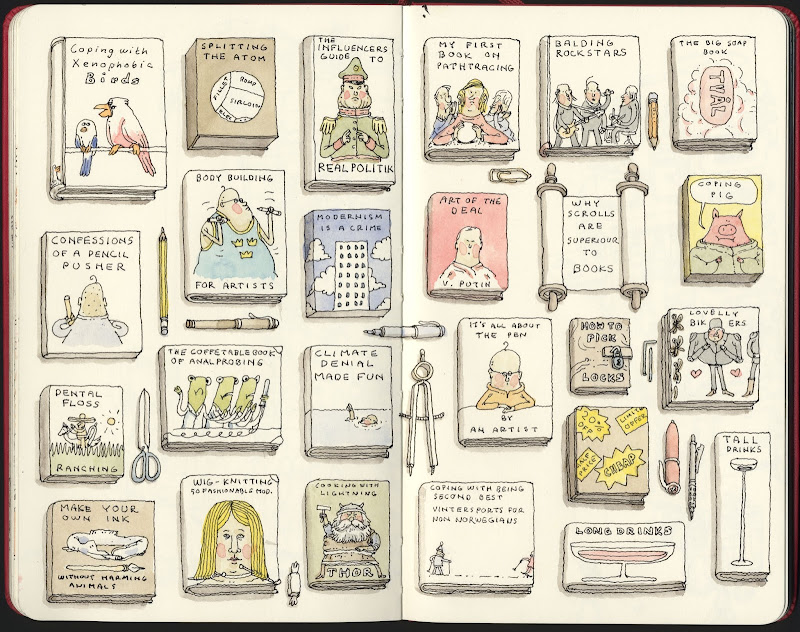 Coping with
Xenophobic
Birds
SPLITTING
THE ATOM
FILLET
RUMP
SIRLOIN
THE
INFLUENCERS
GUIDE TO
REALPOLITIK
BODY BUILDING
FOR ARTISTS
MODERNISM
IS A CRIME
CONFESSIONS
OF A PENCIL
PUSHER
THE COFFETABLE BOOK
OF ANALPROBING
CLIMATE
DENIAL
MADE FUN
DENTAL
FLOSS
RANCHING
MAKE YOUR
OWN INK
WITHOUT HARMING
ANIMALS
WIG-KNITTING
50 FASHIONABLE MOD.
COOKING WITH
LIGHTNING
THOR
MY FIRST
BOOK ON
PATHTRACING
BALDING
ROCKSTARS
THE BIG SOAP
BOOK
TVÅL
ART OF THE
DEAL
V. PUTIN
WHY
SCROLLS
ARE
SUPERIOUR
TO
BOOKS
COPING
PIG
IT'S ALL ABOUT
THE PEN
BY
AN ARTIST
HOW TO
PICK
LOCKS
LOVELLY
BIKERS
20%
OFF
LIMITED
OFFER
HALF
PRICE
CHEAP
TALL
DRINKS
COPING WITH BEING
SECOND BEST
VINTERSPORTS FOR
NON NORWEGIANS
LONG DRINKS